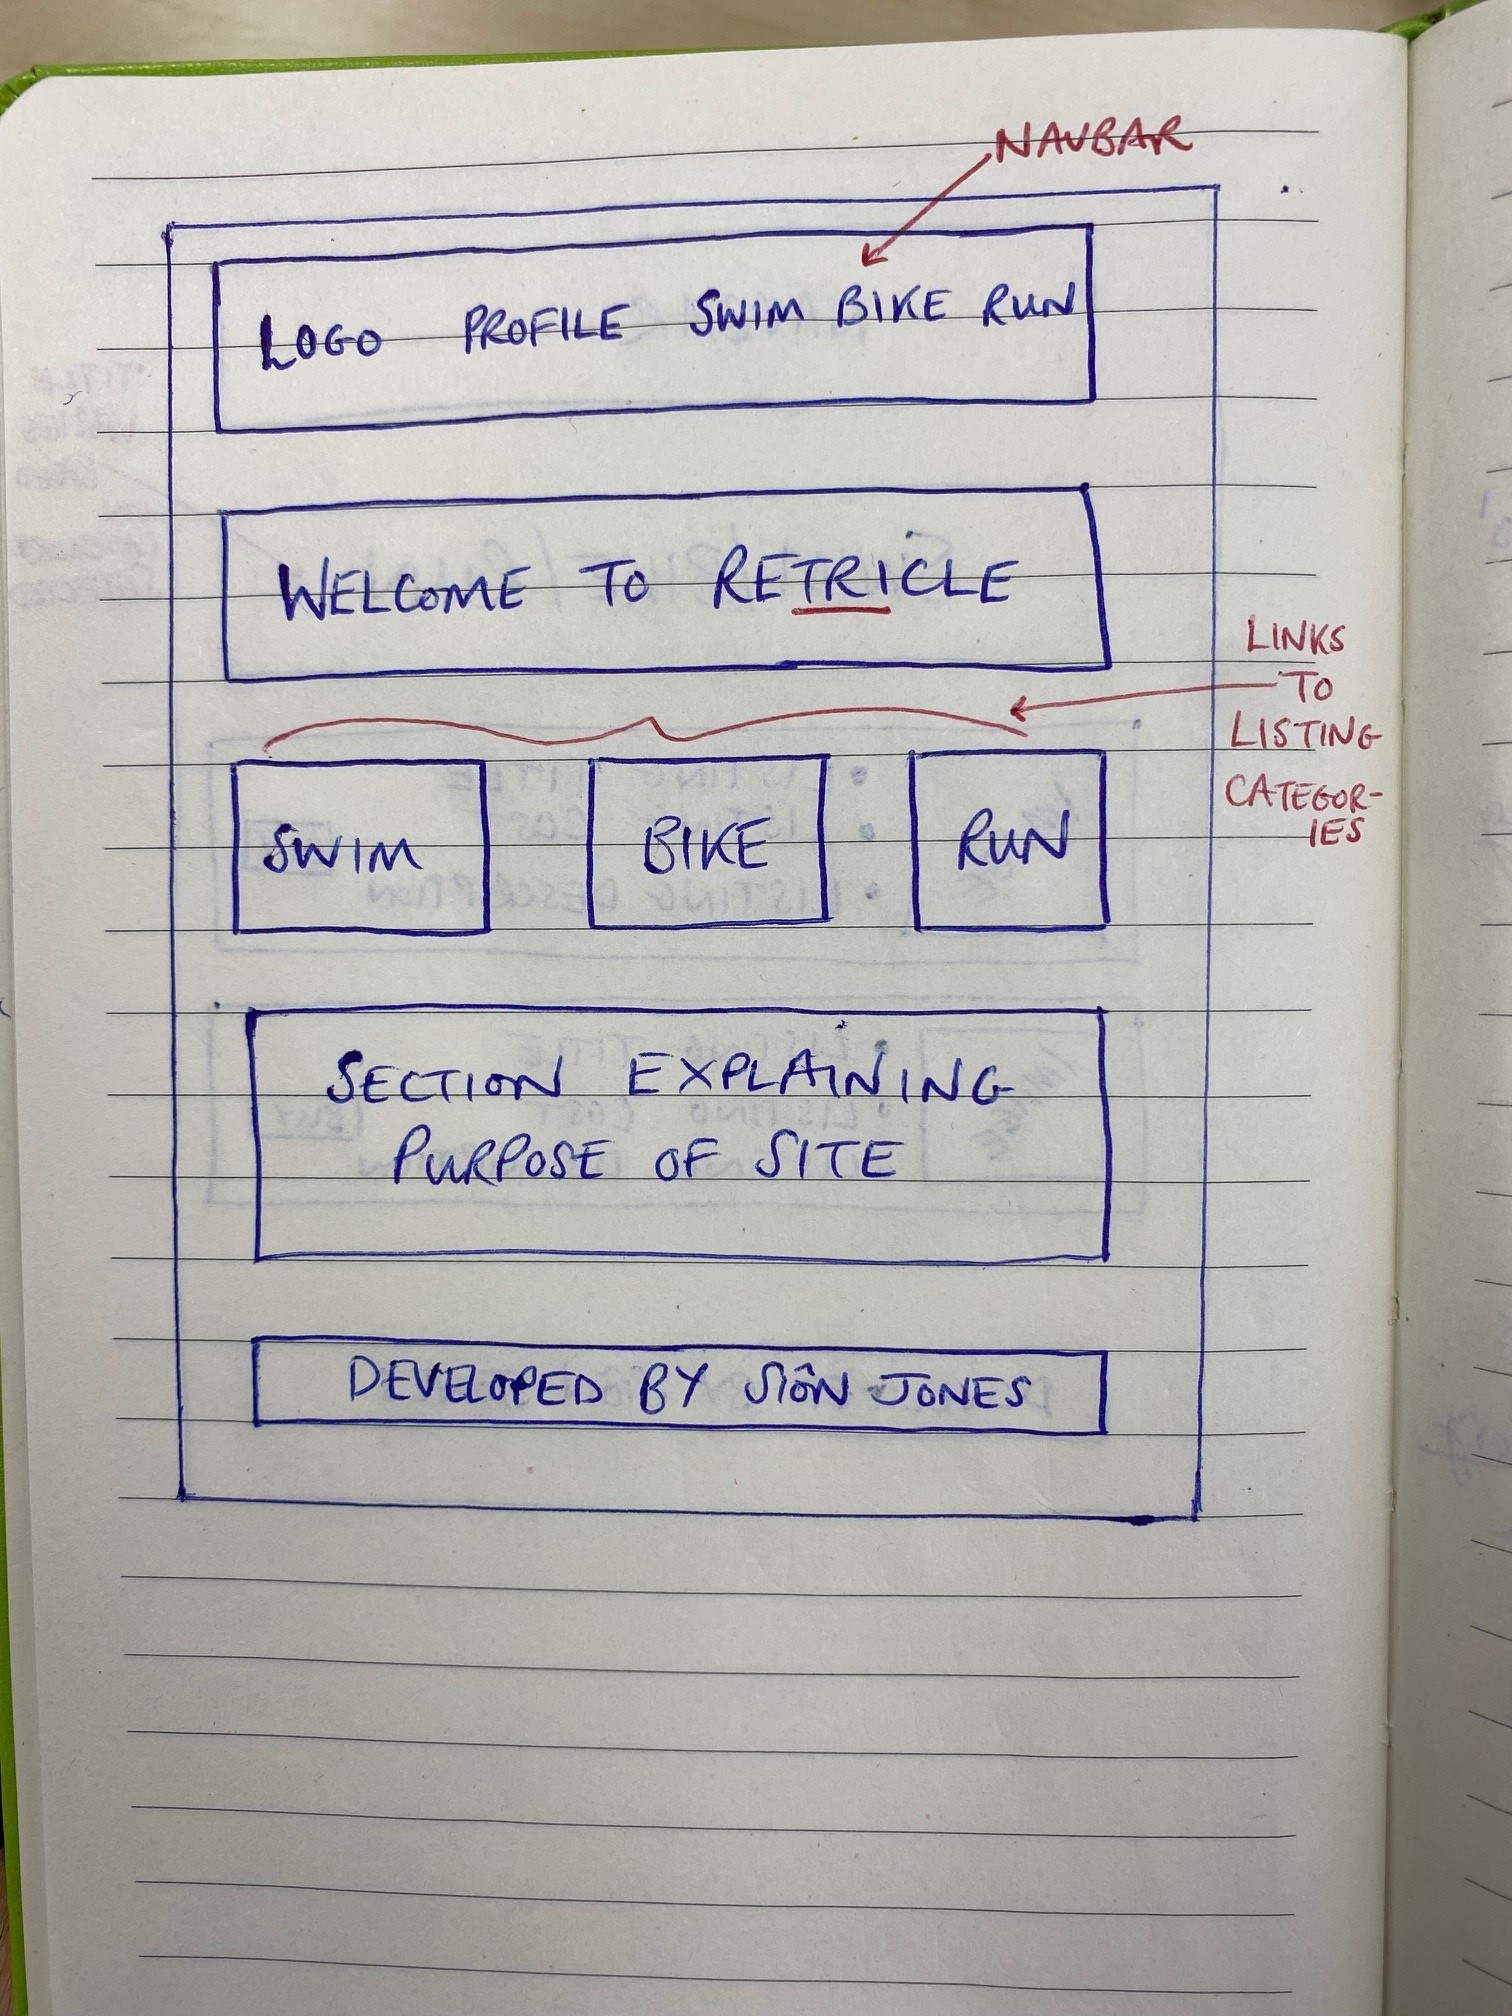 NAVBAR
LOGO PROFILE SWIM BIKE RUN
WELCOME TO RETRICLE
LINKS
TO
LISTING
CATEGOR-
IES
SWIM BIKE RUN
SECTION EXPLAINING
PURPOSE OF SITE
DEVELOPED BY SIÔN JONES